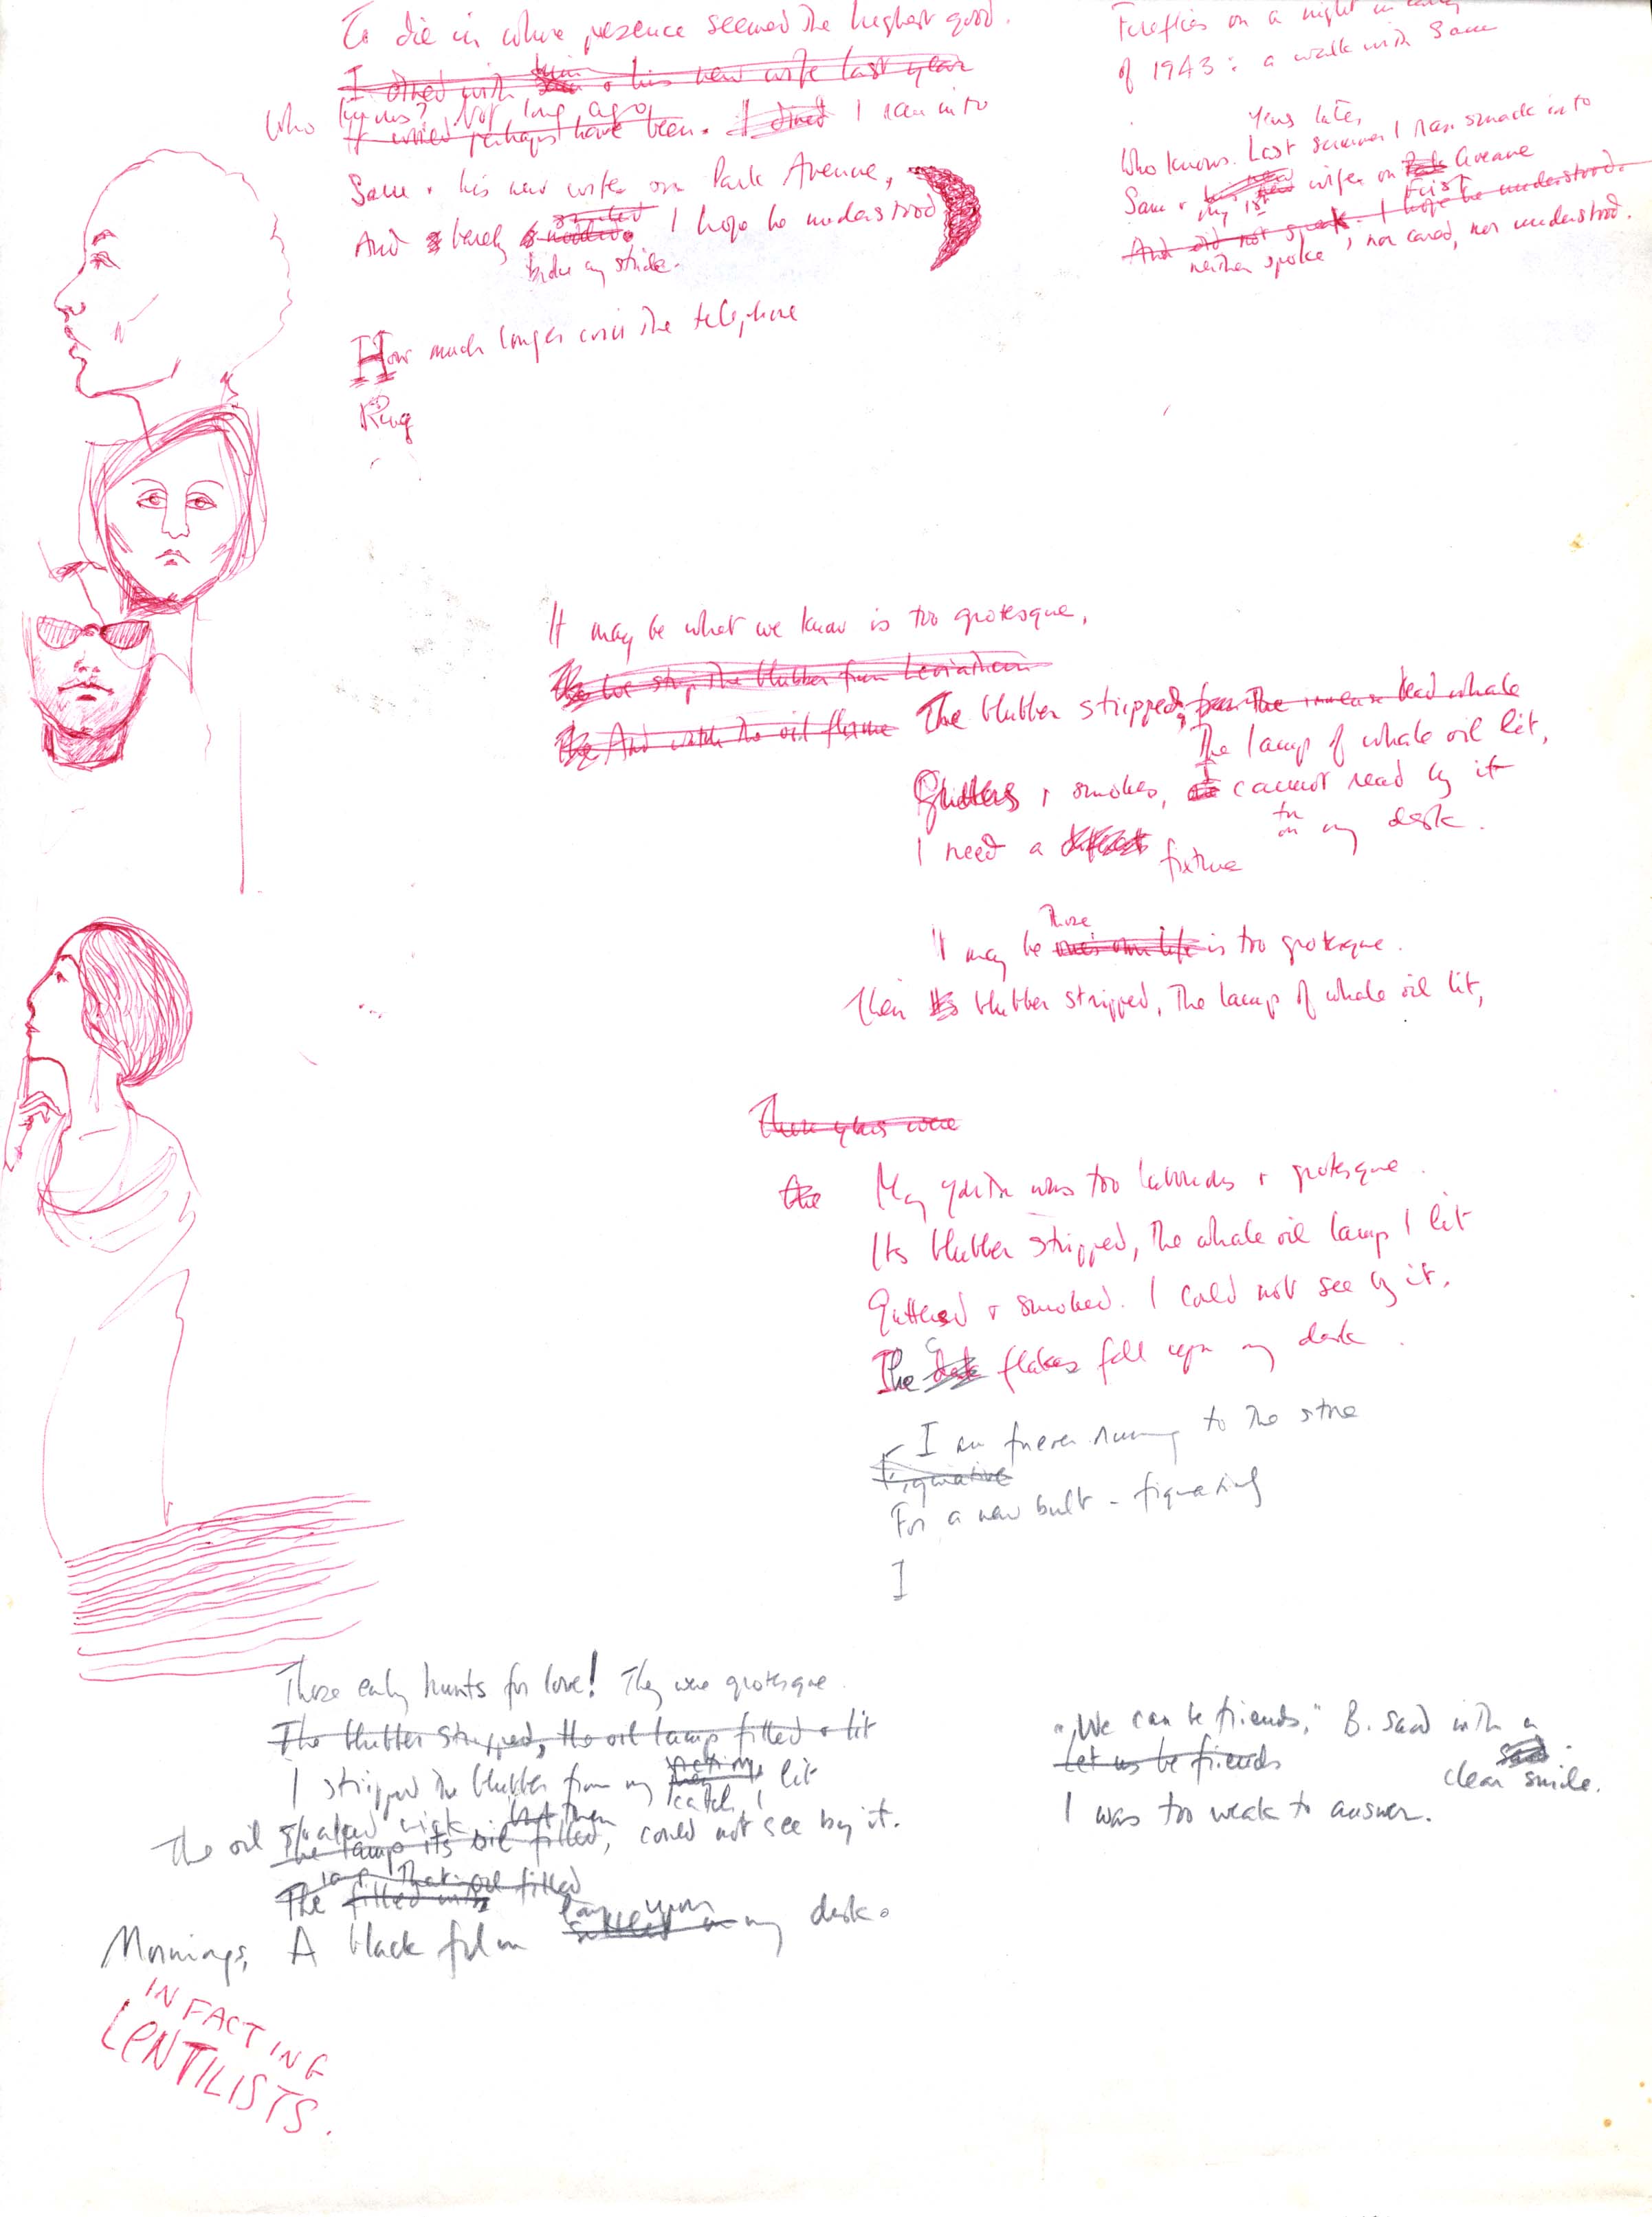 To die in whose presence seemed the highest good.
I dined with him & his new wife last year
Who knows? Not long ago
It would perhaps have been. I dined I ran into
Sam & his new wife on Park Avenue,
And barely smiled nodded. I hope he understood
broke my stride.
How much longer will the telephone
Ring
Fireflies on a night in
of 1943: a walk with Sam
Years later,
Who knows. Last summer I ran smack into
Sam & his new wife on Park Avenue
my 1st First
And did not speak. I hope he understood.
neither spoke, nor cared, nor understood.
It may be what we know is too grotesque,
We strip the blubber from Leviathan
And watch the oil flame The blubber stripped, from the immense dead whale
The lamp of whale oil lit,
Gutters & smokes, I cannot read by it
I need a different fixture for on my desk.
Those
It may be one's own life is too grotesque.
Their blubber stripped, The lamp of whale oil lit,
Those years were
the My youth was too laborious & grotesque.
Its blubber stripped, the whale oil lamp I lit
Guttered & smoked. I could not see by it.
The flakes fell upon my desk.
I am forever running to the store
Figurative
For a new bulb - figurative
I
Those early hunts for love! They were grotesque.
The blubber stripped, the oil lamp filled & lit
I stripped the blubber from my victims lit
catch, I
The oil soaked wick. but then
The lamp its oil filled, could not see by it.
lamp that oil filled
The filled with
lay upon
Mornings, A black film settled on my desk.
"We can be friends," B. said with a
Let us be friends
clear smile.
I was too weak to answer.
IN FACT ING
LENTILISTS.